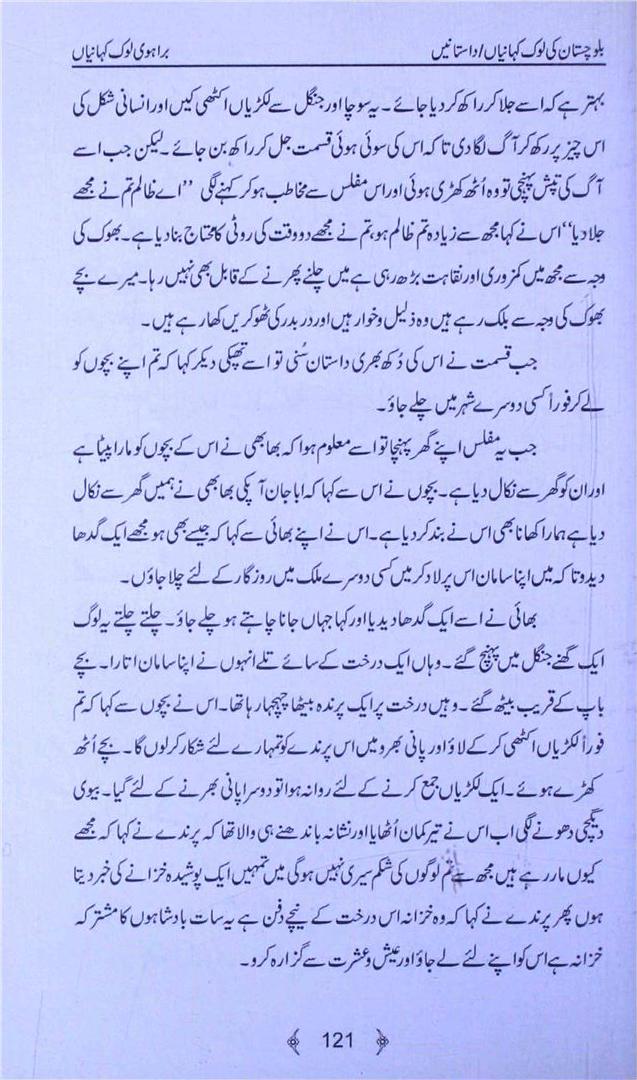 بلوچستان کی لوک کہانیاں/داستانیں
براہوی لوک کہانیاں
بہتر ہے کہ اسے جلا کر راکھ کر دیا جائے۔ یہ سوچا اور جنگل سے لکڑیاں اکٹھی کیں اور انسانی شکل کی
اس چیز پر رکھ کر آگ لگا دی تاکہ اس کی سوئی ہوئی قسمت جل کر راکھ بن جائے۔ لیکن جب اسے
آگ کی تپش پہنچی تو وہ اُٹھ کھڑی ہوئی اور اس مفلس سے مخاطب ہو کر کہنے لگی ’’اے ظالم تم نے مجھے
جلا دیا‘‘ اس نے کہا مجھ سے زیادہ تم ظالم ہو، تم نے مجھے دو وقت کی روٹی کا محتاج بنا دیا ہے۔ بھوک کی
وجہ سے مجھ میں کمزوری اور نقاہت بڑھ رہی ہے میں چلنے پھرنے کے قابل بھی نہیں رہا۔ میرے بچے
بھوک کی وجہ سے بلک رہے ہیں وہ ذلیل و خوار ہیں اور در بدر کی ٹھوکریں کھا رہے ہیں۔
جب قسمت نے اس کی دُکھ بھری داستان سُنی تو اسے تھپکی دیکر کہا کہ تم اپنے بچوں کو
لے کر فوراً کسی دوسرے شہر میں چلے جاؤ۔
جب یہ مفلس اپنے گھر پہنچا تو اسے معلوم ہوا کہ بھابھی نے اس کے بچوں کو مارا پیٹا ہے
اور ان کو گھر سے نکال دیا ہے۔ بچوں نے اس سے کہا کہ ابا جان آپکی بھابھی نے ہمیں گھر سے نکال
دیا ہے ہمارا کھانا بھی اس نے بند کر دیا ہے۔ اس نے اپنے بھائی سے کہا کہ جیسے بھی ہو مجھے ایک گدھا
دیدو تاکہ میں اپنا سامان اس پر لاد کر میں کسی دوسرے ملک میں روزگار کے لئے چلا جاؤں۔
بھائی نے اسے ایک گدھا دیدیا اور کہا جہاں جانا چاہتے ہو چلے جاؤ۔ چلتے چلتے یہ لوگ
ایک گھنے جنگل میں پہنچ گئے۔ وہاں ایک درخت کے سائے تلے انہوں نے اپنا سامان اتارا۔ بچے
باپ کے قریب بیٹھ گئے۔ وہیں درخت پر ایک پرندہ بیٹھا چہچہا رہا تھا۔ اس نے بچوں سے کہا کہ تم
فوراً لکڑیاں اکٹھی کر کے لاؤ اور پانی بھرو میں اس پرندے کو تمہارے لئے شکار کر لوں گا۔ بچے اُٹھ
کھڑے ہوئے۔ ایک لکڑیاں جمع کرنے کے لئے روانہ ہوا تو دوسرا پانی بھرنے کے لئے گیا۔ بیوی
دیگچی دھونے لگی اب اس نے تیر کمان اُٹھایا اور نشانہ باندھنے ہی والا تھا کہ پرندے نے کہا کہ مجھے
کیوں مار رہے ہیں مجھ سے تم لوگوں کی شکم سیری نہیں ہوگی میں تمہیں ایک پوشیدہ خزانے کی خبر دیتا
ہوں پھر پرندے نے کہا کہ وہ خزانہ اس درخت کے نیچے دفن ہے یہ سات بادشاہوں کا مشترکہ
خزانہ ہے اس کو اپنے لئے لے جاؤ اور عیش و عشرت سے گزارہ کرو۔
121